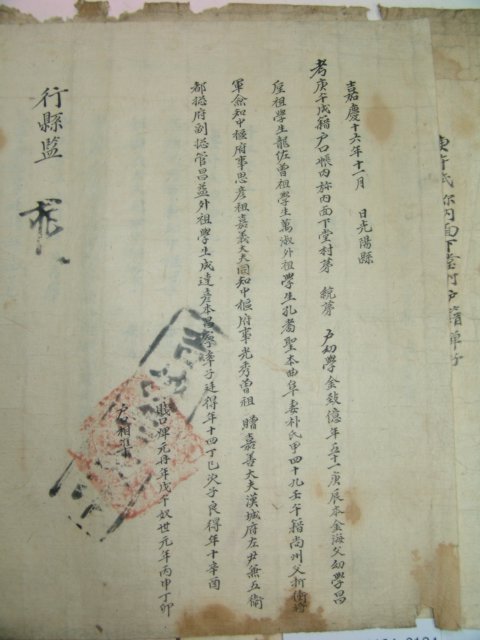 庚午式 內面下堂村戶籍單子
嘉慶十六年十一月 日光陽縣
考庚午成籍戶口帳內 內面下堂村第 統第 戶幼學金致億年五十一庚辰本金海父幼學昌
祖學生龍佐曾祖學生萬淑外祖學生孔 聖本曲阜妻朴氏甲四十九壬午籍尙州父折衝將
軍僉知中樞府事思彦祖嘉義大夫同知中樞府事光秀曾祖 贈嘉善大夫漢城府左尹兼五衛
都摠府副摠管昌益外祖學生成達彦本昌寧率子廷得年十四丁巳次子良得年十辛酉
賤口婢元丹年戊午奴世元年丙申丁卯
戶相準
行縣監